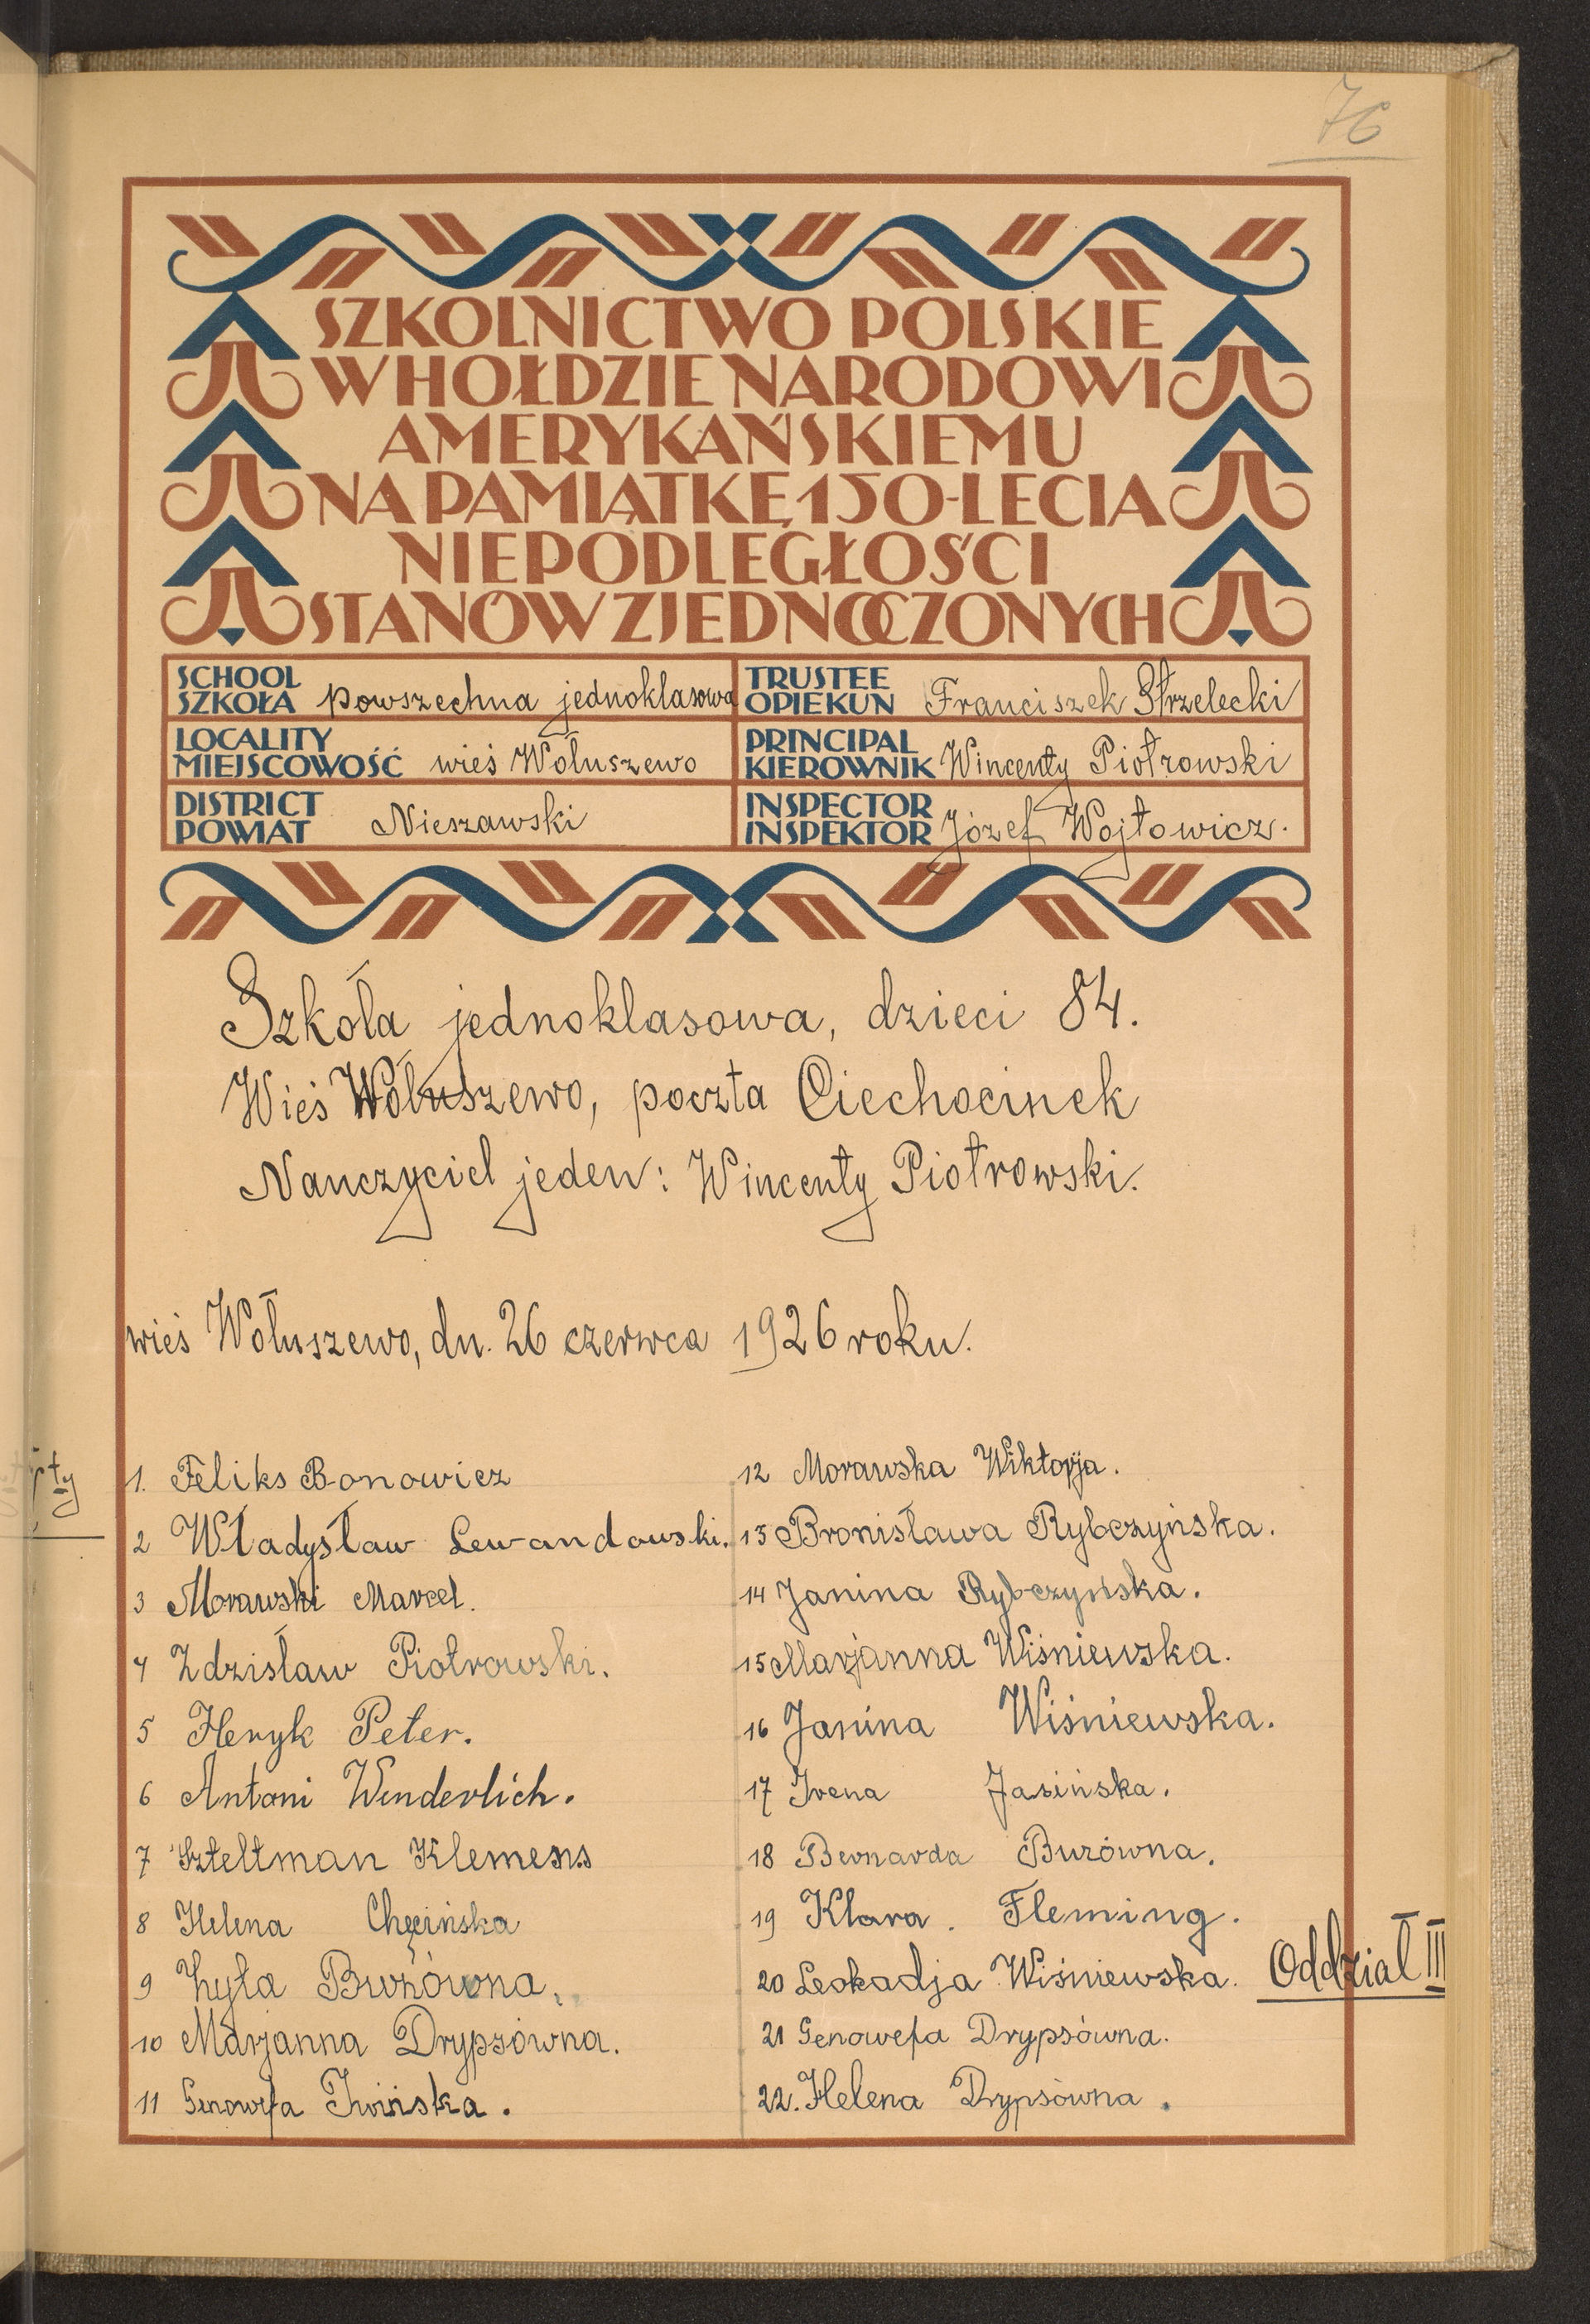 76
SZKOLNICTWO POLSKIE
W HOŁDZIE NARODOWI
AMERYKAŃSKIEMU
NA PAMIĄTKĘ 150-LECIA
NIEPODLEGŁOŚCI
STANÓW ZJEDNOCZONYCH
SCHOOL
SZKOŁA powszechna jednoklasowa
TRUSTEE
OPIEKUN Franciszek Strzelecki
LOCALITY
MIEJSCOWOŚĆ wieś Wołuszewo
PRINCIPAL
KIEROWNIK Wincenty Piotrowski
DISTRICT
POWIAT Nieszawski
INSPECTOR
INSPEKTOR Józef Wojtowicz.
Szkoła jednoklasowa, dzieci 84.
Wieś Wołuszewo, poczta Ciechocinek
Nauczyciel jeden: Wincenty Piotrowski.
wieś Wołuszewo, dn. 26 czerwca 1926 roku.
1. Feliks Bonowicz
2 Władysław Lewandowski.
3 Morawski Marcel.
4 Zdzisław Piotrowski.
5 Henryk Peter.
6 Antoni Wenderlich.
7 Szteltman Klemens
8 Helena Chęcińska
9 Zyta Burówna.
10 Marjanna Drypsówna.
11 Genowefa Iwińska.
12 Morawska Wiktorja.
13 Bronisława Rybczyńska.
14 Janina Rybczyńska.
15 Marjanna Wiśniewska.
16 Janina Wiśniewska.
17 Irena Jasińska.
18 Bernarda Burówna.
19 Klara. Fleming.
20 Leokadja Wiśniewska.
21 Genowefa Drypsówna.
22. Helena Drypsówna.
Oddział III